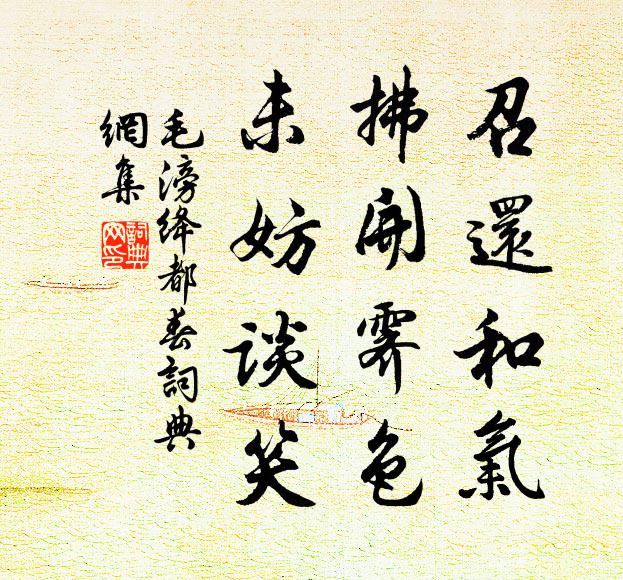 召還和氣
拂開霽色
未妨談笑
毛滂絳都春詞典
網集
詞典网印